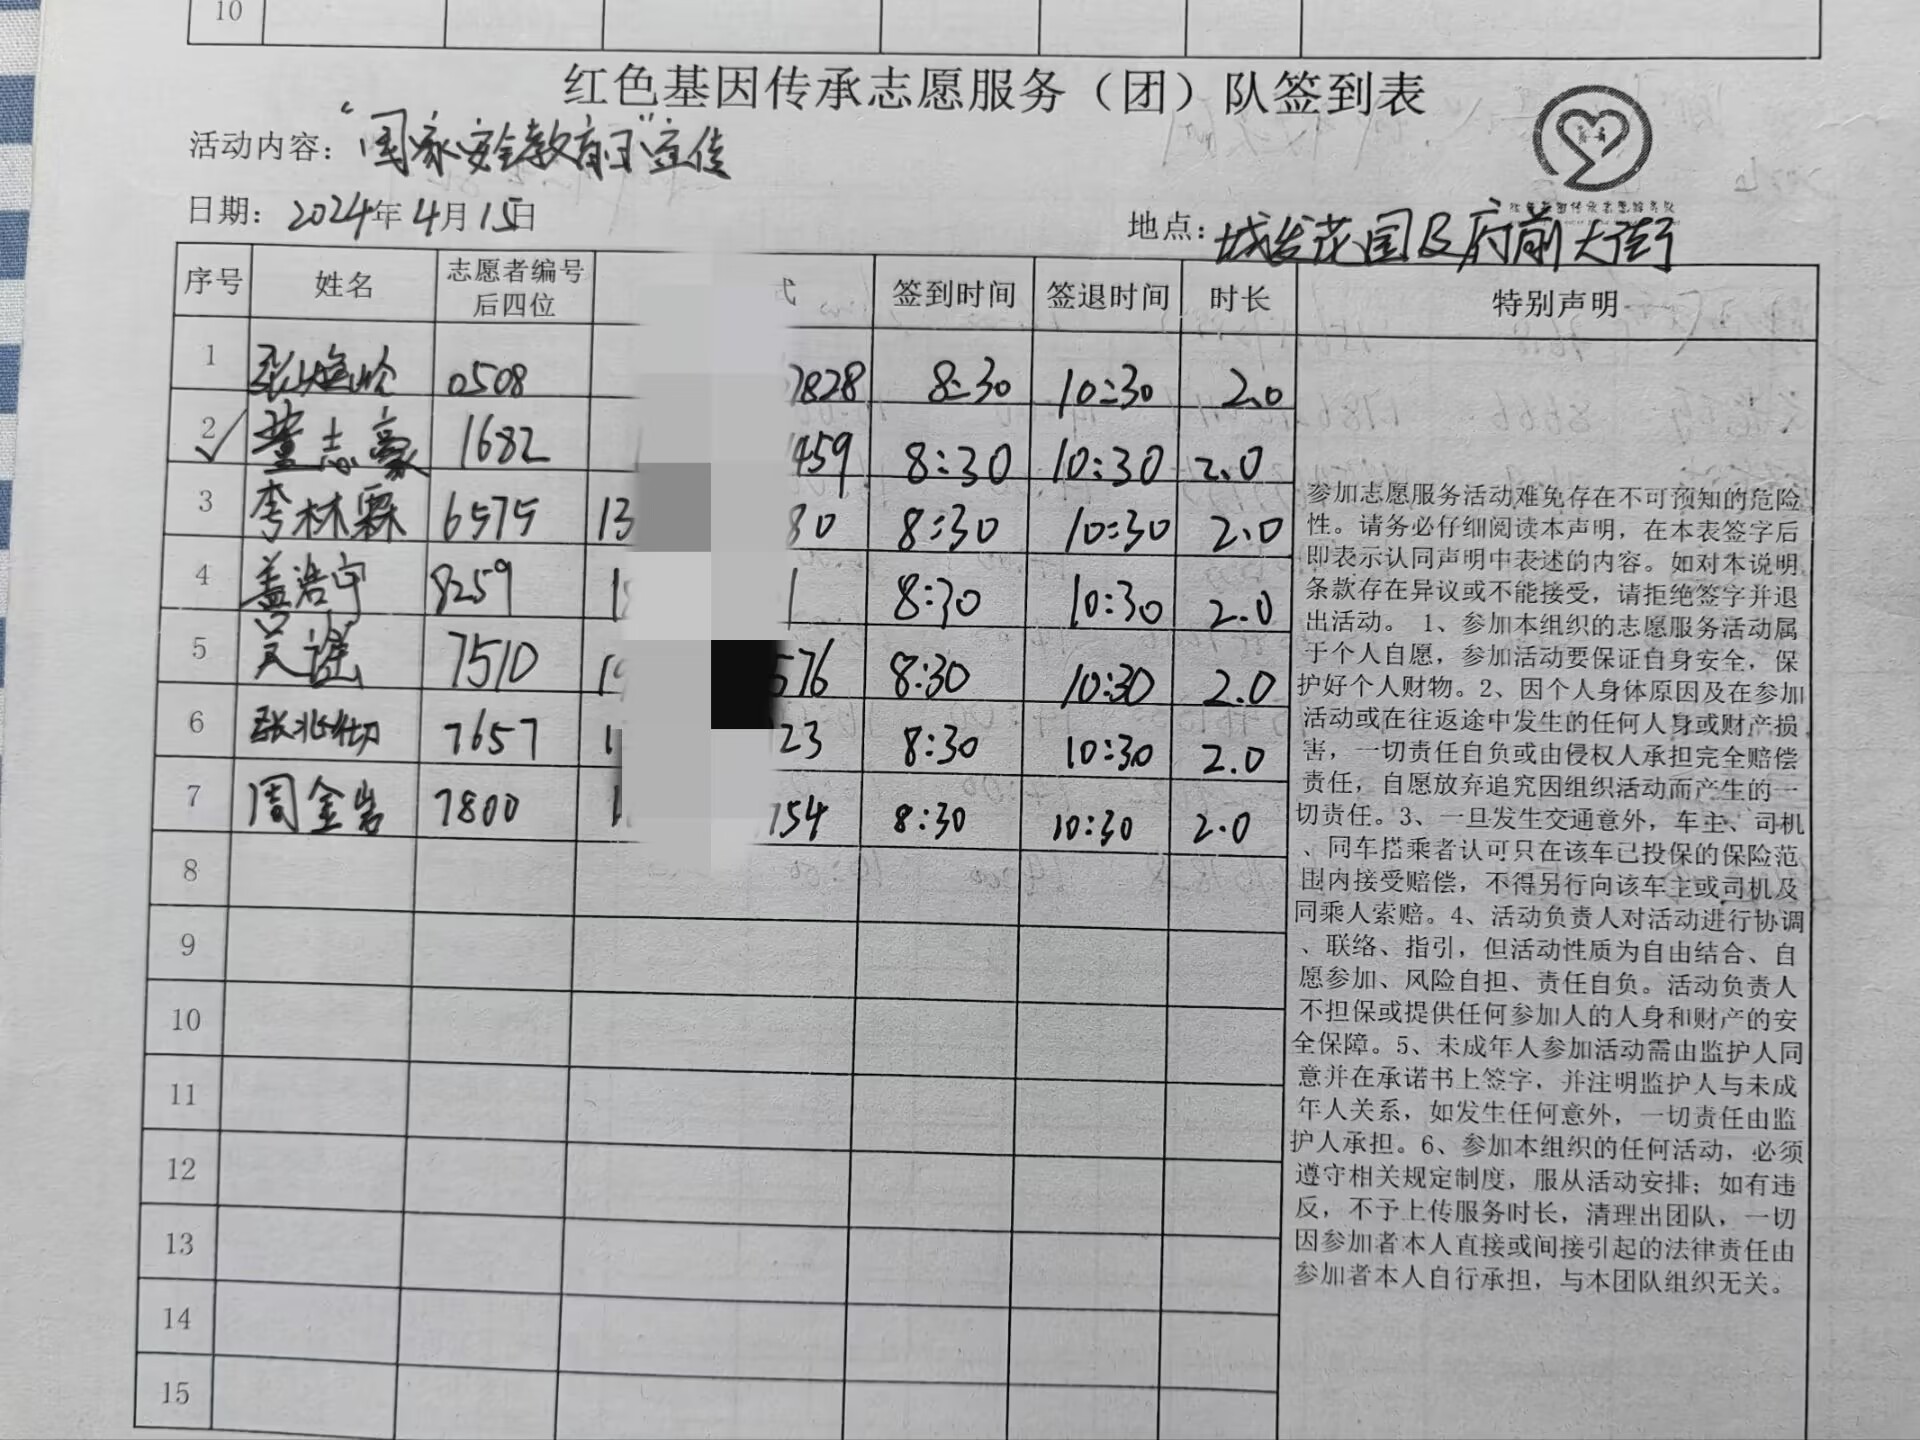 10
红色基因传承志愿服务（团）队签到表
活动内容：“国家安全教育日”宣传
日期：2024年4月15日
地点：城发花园及府前大街
序号 姓名 志愿者编号后四位 式 签到时间 签退时间 时长 特别声明
1 0508 7828 8:30 10:30 2.0
2 董志豪 1682 459 8:30 10:30 2.0
3 李林霖 6575 13 80 8:30 10:30 2.0
4 盖浩宁 8259 1 1 8:30 10:30 2.0
5 吴谣 7510 1 576 8:30 10:30 2.0
6 7657 1 23 8:30 10:30 2.0
7 周金岩 7800 1 754 8:30 10:30 2.0
8
9
10
11
12
13
14
15
参加志愿服务活动难免存在不可预知的危险
性。请务必仔细阅读本声明，在本表签字后
即表示认同声明中表述的内容。如对本说明
条款存在异议或不能接受，请拒绝签字并退
出活动。 1、参加本组织的志愿服务活动属
于个人自愿，参加活动要保证自身安全，保
护好个人财物。2、因个人身体原因及在参加
活动或在往返途中发生的任何人身或财产损
害，一切责任自负或由侵权人承担完全赔偿
责任，自愿放弃追究因组织活动而产生的一
切责任。3、一旦发生交通意外，车主、司机
、同车搭乘者认可只在该车已投保的保险范
围内接受赔偿，不得另行向该车主或司机及
同乘人索赔。4、活动负责人对活动进行协调
、联络、指引，但活动性质为自由结合、自
愿参加、风险自担、责任自负。活动负责人
不担保或提供任何参加人的人身和财产的安
全保障。5、未成年人参加活动需由监护人同
意并在承诺书上签字，并注明监护人与未成
年人关系，如发生任何意外，一切责任由监
护人承担。6、参加本组织的任何活动，必须
遵守相关规定制度，服从活动安排；如有违
反，不予上传服务时长，清理出团队，一切
因参加者本人直接或间接引起的法律责任由
参加者本人自行承担，与本团队组织无关。